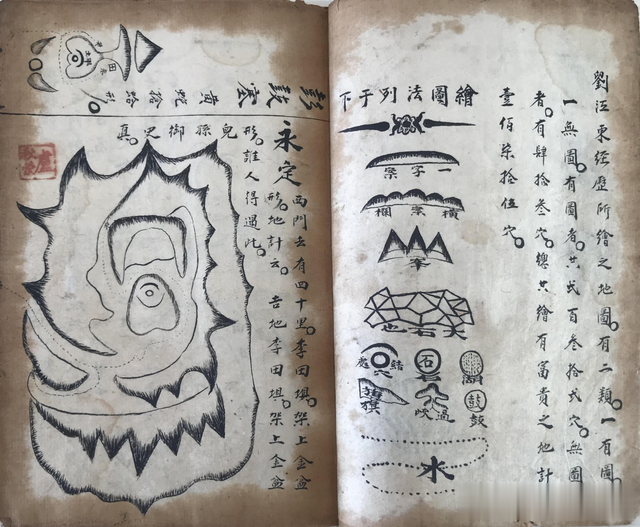 劉江東經歷所繪之地圖。有二類。一有圖
一無圖。有圖者。共弍百叁拾弍穴。無圖
者。有肆拾叁穴。總共繪有富貴之地計
壹佰柒拾伍穴。
繪圖法列于下
一字案
橫案欄
峯
大石也
結穴處
石
湖
旗
過峽
鼓
水
永定
西門去有四十里。李田埧。架上金盆
形。地計云。吉地李田埧。架上金盆
形。誰人得遇此。
兒孫御史真。